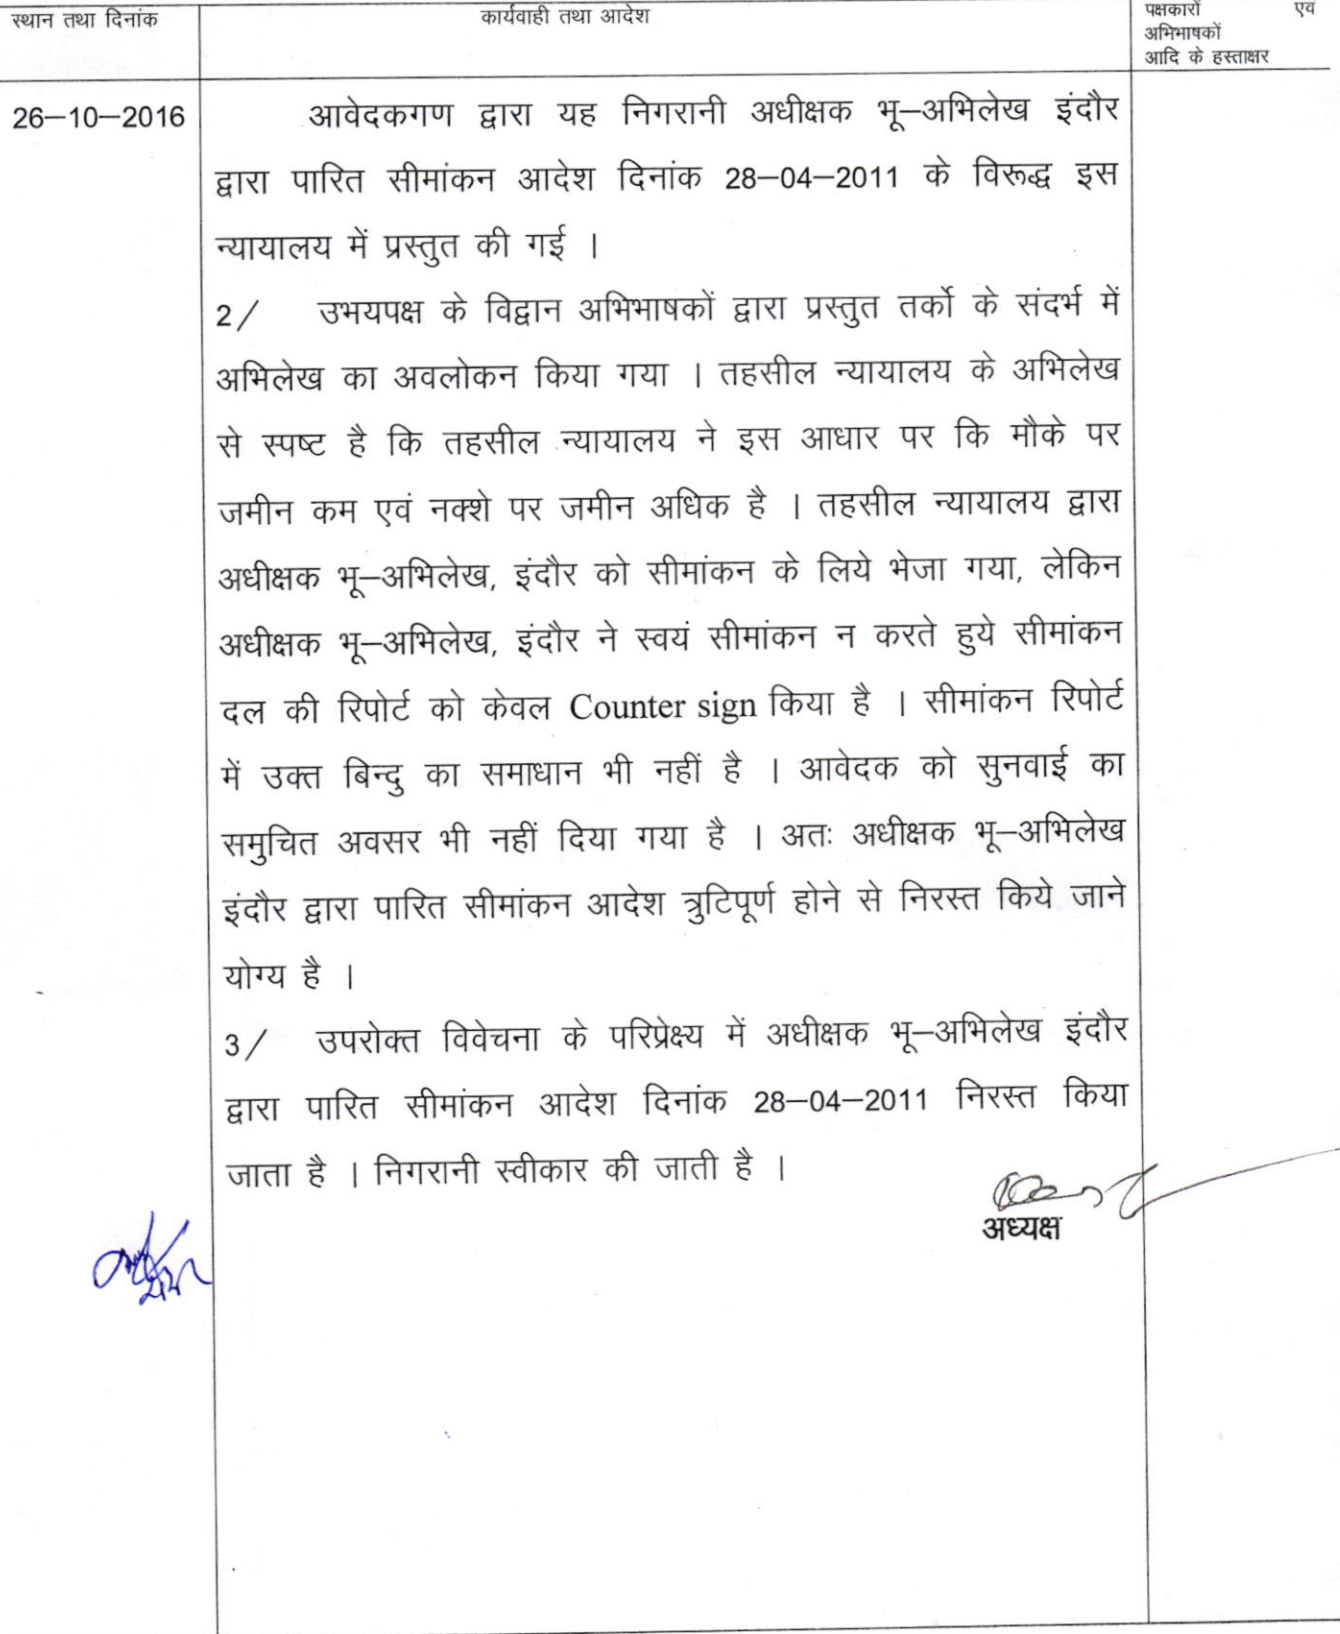 स्थान तथा दिनांक
कार्यवाही तथा आदेश
पक्षकारों एवं
अभिभाषकों
आदि के हस्ताक्षर
26–10–2016
आवेदकगण द्वारा यह निगरानी अधीक्षक भू–अभिलेख इंदौर
द्वारा पारित सीमांकन आदेश दिनांक 28–04–2011 के विरूद्ध इस
न्यायालय में प्रस्तुत की गई ।
2/ उभयपक्ष के विद्वान अभिभाषकों द्वारा प्रस्तुत तर्को के संदर्भ में
अभिलेख का अवलोकन किया गया । तहसील न्यायालय के अभिलेख
से स्पष्ट है कि तहसील न्यायालय ने इस आधार पर कि मौके पर
जमीन कम एवं नक्शे पर जमीन अधिक है । तहसील न्यायालय द्वारा
अधीक्षक भू–अभिलेख, इंदौर को सीमांकन के लिये भेजा गया, लेकिन
अधीक्षक भू–अभिलेख, इंदौर ने स्वयं सीमांकन न करते हुये सीमांकन
दल की रिपोर्ट को केवल Counter sign किया है । सीमांकन रिपोर्ट
में उक्त बिन्दु का समाधान भी नहीं है । आवेदक को सुनवाई का
समुचित अवसर भी नहीं दिया गया है । अतः अधीक्षक भू–अभिलेख
इंदौर द्वारा पारित सीमांकन आदेश त्रुटिपूर्ण होने से निरस्त किये जाने
योग्य है ।
3/ उपरोक्त विवेचना के परिप्रेक्ष्य में अधीक्षक भू–अभिलेख इंदौर
द्वारा पारित सीमांकन आदेश दिनांक 28–04–2011 निरस्त किया
जाता है । निगरानी स्वीकार की जाती है ।
अध्यक्ष